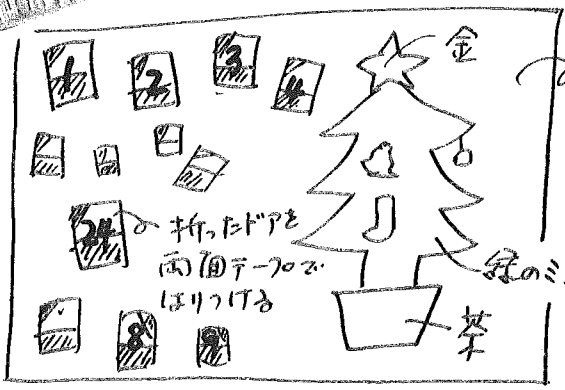 1
2
3
4
金
24
折ったドアを
両面テープで
はりつける
緑のミ
8
9
茶